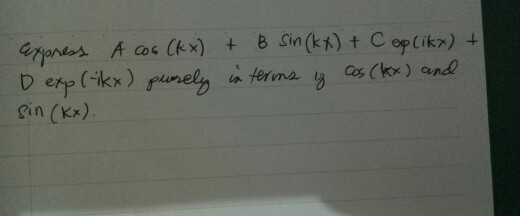 Express A cos (kx) + B Sin (kx) + C exp (ikx) +
D exp (-ikx) purely in terms of cos (kx) and
sin (kx).